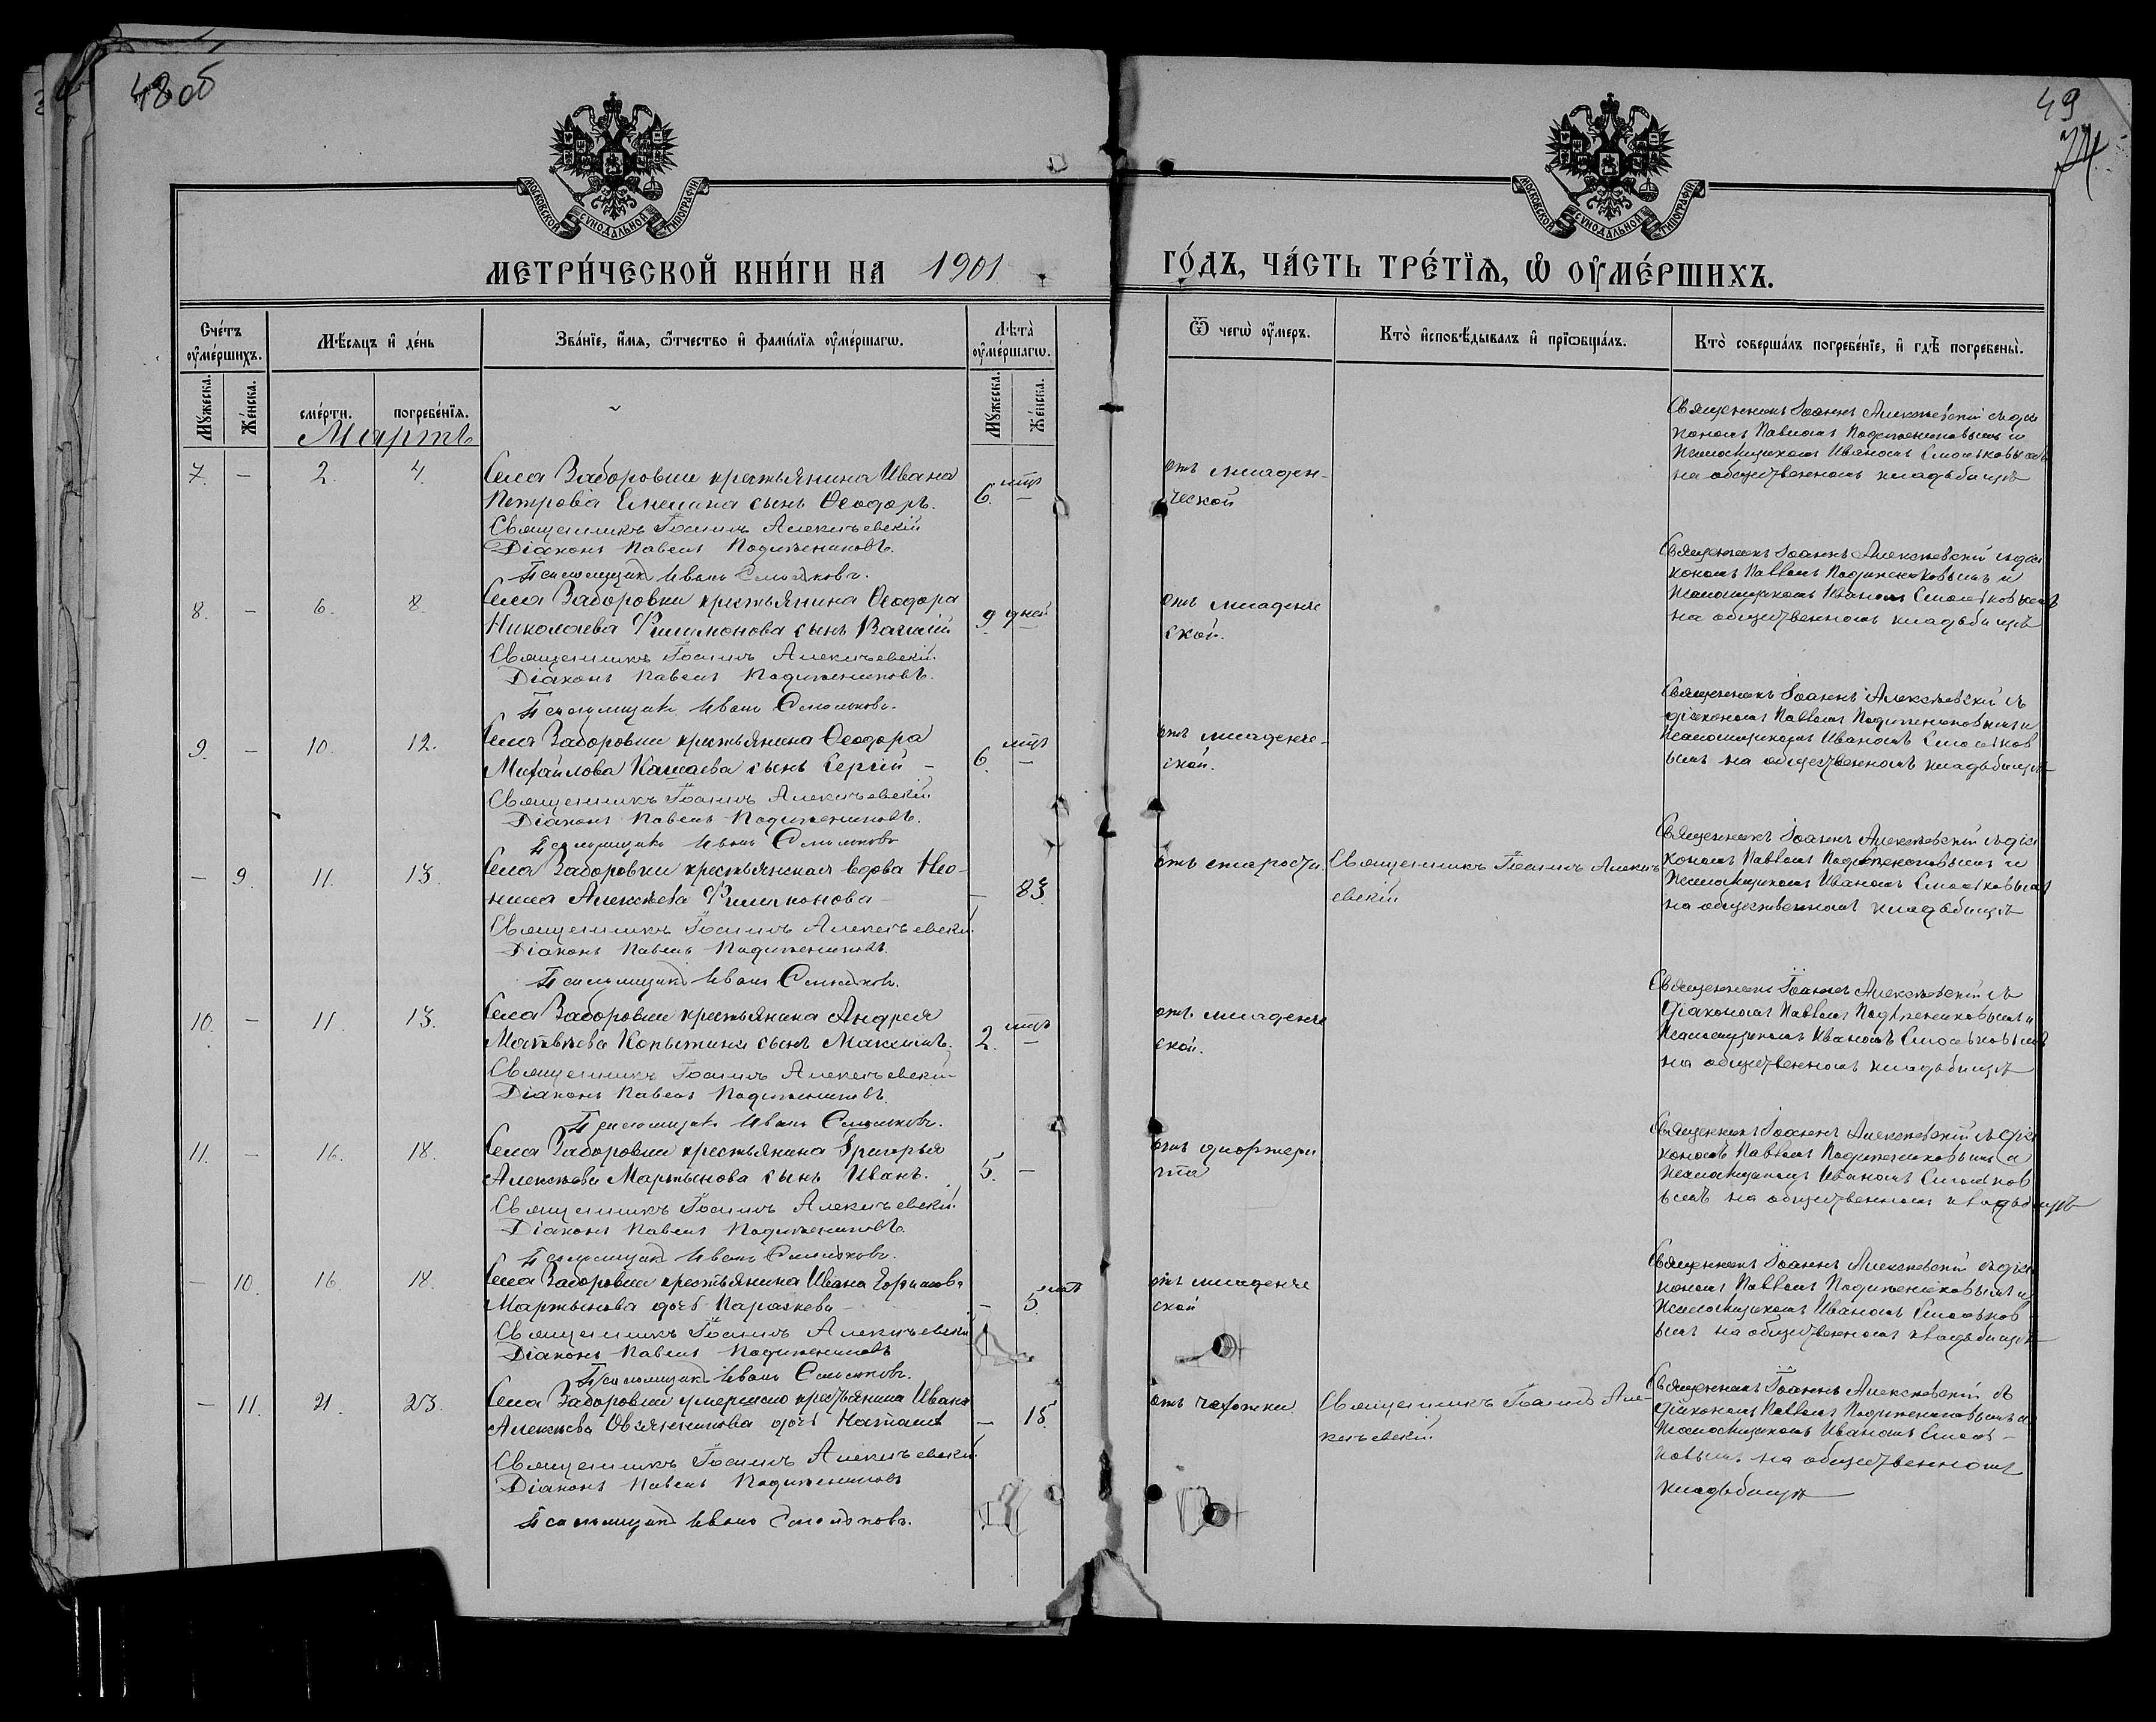 48 об
49
74
МОСКОВСКОЙ СѴНОДАЛЬНОЙ ТИПОГРАФІИ
МОСКОВСКОЙ СѴНОДАЛЬНОЙ ТИПОГРАФІИ
МЕТРИ́ЧЕСКОЙ КНИ́ГИ НА 1901 ГО́ДЪ, ЧА́СТЬ ТРЕ́ТЇѦ, Ѡ҆ ОУ҆МЕ́РШИХЪ.
Сче́тъ оу҆ме́ршихъ.
Мꙋ́жеска.
Же́нска.
Мѣ́сѧцъ и҆ де́нь
сме́рти.
погребе́нїѧ.
Зва́нїе, и҆́мѧ, ѻ҆́тчество и҆ фами́лїѧ оу҆ме́ршагѡ.
Лѣ́та оу҆ме́ршагѡ.
Мꙋ́жеска.
Же́нска.
Ѿ чегѡ̀ оу҆́меръ.
Кто̀ и҆сповѣ́дывалъ и҆ прїѡбща́лъ.
Кто̀ соверша́лъ погребе́нїе, и҆ гдѣ̀ погребены̀.
Мартъ
7. – 2. 4. Села Заборовки крестьянина Ивана
Петрова сынъ Ѳеодоръ. 6. –
Священникъ Іоаннъ Алексѣевскій
Діаконъ Павелъ
Псаломщикъ Иванъ Смольковъ.
отъ младен-
ческой
Священникъ Іоаннъ Алексѣевскій съ діа
кономъ Павломъ и
Псаломщикомъ Иваномъ Смольковымъ
на общественномъ кладбищѣ
8. – 6. 8. Села Заборовки крестьянина Ѳеодора
Николаева Филимонова сынъ 9 дней –
Священникъ Іоаннъ Алексѣевскій.
Діаконъ Павелъ
Псаломщикъ Иванъ Смольковъ.
отъ младенче
ской.
Священникъ Іоаннъ Алексѣевскій съ діа
кономъ Павломъ и
Псаломщикомъ Иваномъ Смольковымъ
на общественномъ кладбищѣ
9. – 10. 12. Села Заборовки крестьянина Ѳеодора
Михайлова сынъ Сергій – 6. –
Священникъ Іоаннъ Алексѣевскій
Діаконъ Павелъ
Псаломщикъ Иванъ Смольковъ
отъ младенче-
ской.
Священникъ Іоаннъ Алексѣевскій съ
діакономъ Павломъ и
Псаломщикомъ Иваномъ Смольков
ымъ на общественномъ кладбищѣ
– 9. 11. 13. Села Заборовки крестьянская вдова Нео-
нила Алексѣева Филимонова – – 83.
Священникъ Іоаннъ Алексѣевскій.
Діаконъ Павелъ
Псаломщикъ Иванъ Смольковъ.
отъ старости.
Священникъ Іоаннъ Алексѣ
евскій
Священникъ Іоаннъ Алексѣевскій съ діа
кономъ Павломъ и
Псаломщикомъ Иваномъ Смольковымъ
на общественномъ кладбищѣ
10. – 11. 13. Села Заборовки крестьянина Андрея
Матвѣева Копытина сынъ Максимъ. 2. –
Священникъ Іоаннъ Алексѣевскій
Діаконъ Павелъ
Псаломщикъ Иванъ Смольковъ.
отъ младенче
ской.
Священникъ Іоаннъ Алексѣевскій съ
Діакономъ Павломъ и
Псаломщикомъ Иваномъ Смольковымъ
на общественномъ кладбищѣ
11. – 16. 18. Села Заборовки крестьянина Григорья
Алексѣева Мартынова сынъ Иванъ. 5. –
Священникъ Іоаннъ Алексѣевскій
Діаконъ Павелъ
Псаломщикъ Иванъ Смольковъ.
отъ дифтери
та
Священникъ Іоаннъ Алексѣевскій съ діа
кономъ Павломъ и
Псаломщикомъ Иваномъ Смольков
ымъ на общественномъ кладбищѣ
– 10. 16. 18. Села Заборовки крестьянина Ивана
Мартынова дочь Параскева – – 5.
Священникъ Іоаннъ Алексѣевскій
Діаконъ Павелъ
Псаломщикъ Иванъ Смольковъ.
отъ младенче
ской
Священникъ Іоаннъ Алексѣевскій съ діа
кономъ Павломъ и
Псаломщикомъ Иваномъ Смольков
ымъ на общественномъ кладбищѣ
– 11. 21. 23. Села Заборовки умершаго крестьянина Ивана
Алексѣева Овсянникова дочь Наталія – 15.
Священникъ Іоаннъ Алексѣевскій.
Діаконъ Павелъ
Псаломщикъ Иванъ Смольковъ.
отъ чахотки
Священникъ Іоаннъ Але-
ксѣевскій.
Священникъ Іоаннъ Алексѣевскій съ
діакономъ Павломъ и
Псаломщикомъ Иваномъ Смоль-
ковымъ на общественномъ
кладбищѣ